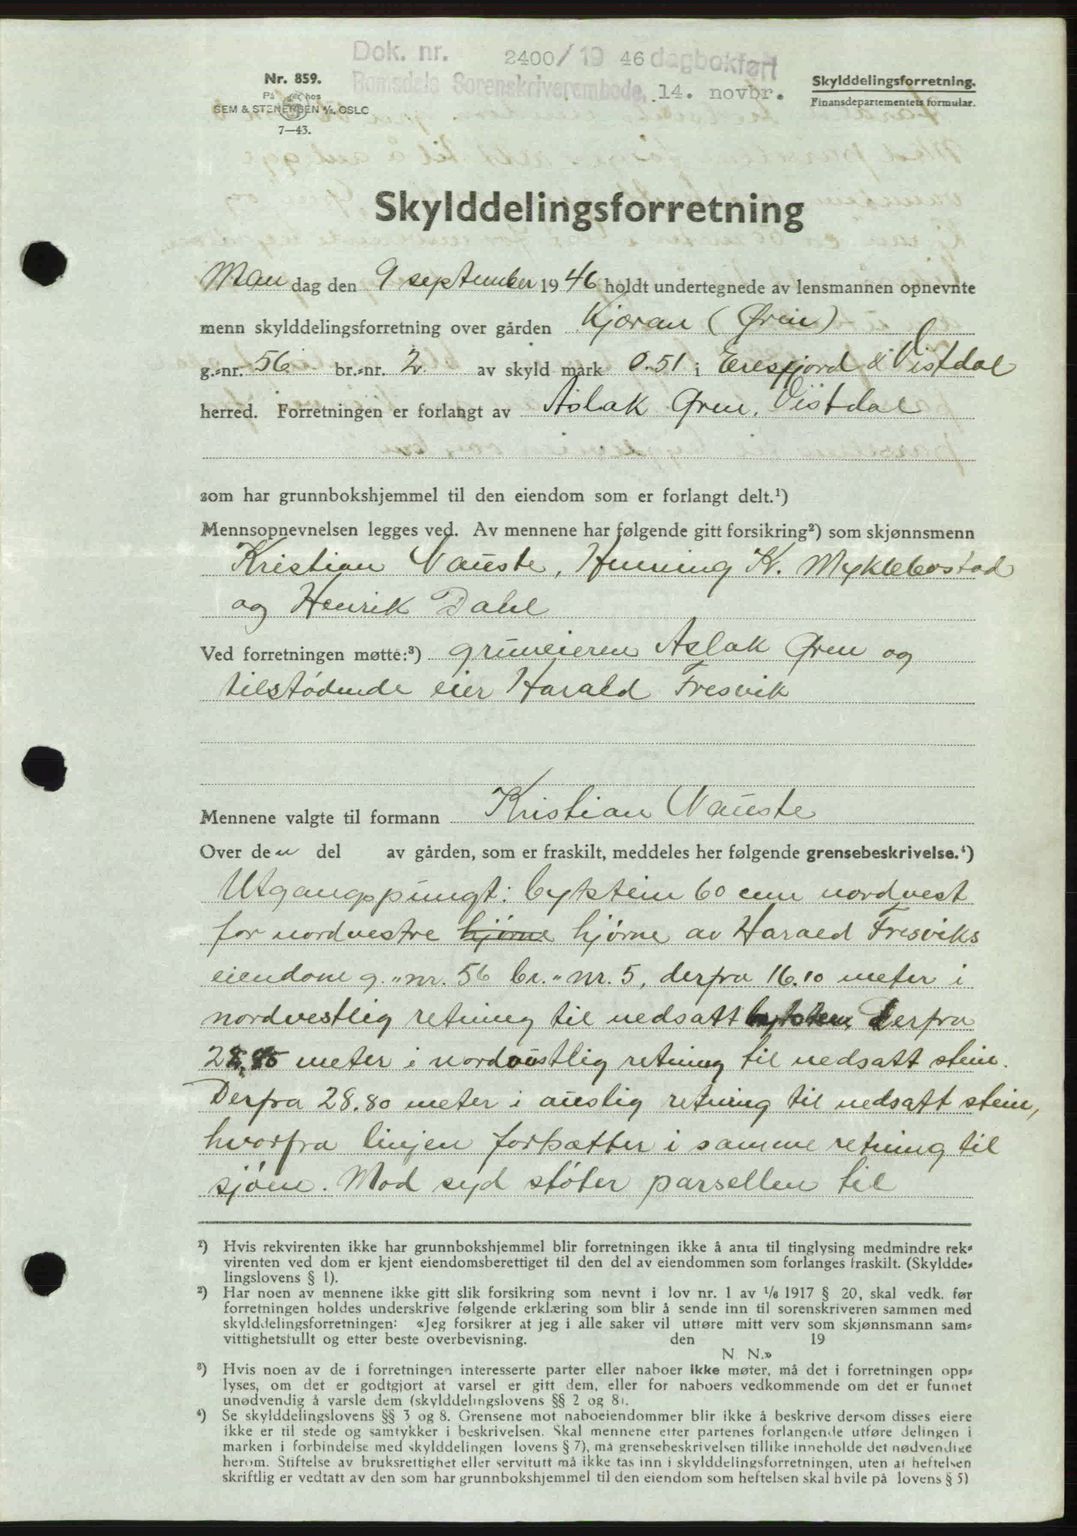 Dok. nr. 2400/19 46 dagbokført
Romsdals Sorenskriverembede, 14. novbr.
Nr. 859.
På lager hos
SEM & STENERSEN A/S, OSLO
7—43.
Skylddelingsforretning.
Finansdepartementets formular.
Skylddelingsforretning
Man dag den 9 september 1946 holdt undertegnede av lensmannen opnevnte
menn skylddelingsforretning over gården Kjøran (Øren)
g.-nr. 56 br.-nr. 2 av skyld mark 0.51 i Eresfjord & Vistdal
herred. Forretningen er forlangt av Aslak Øren, Vistdal
som har grunnbokshjemmel til den eiendom som er forlangt delt.¹)
Mennsopnevnelsen legges ved. Av mennene har følgende gitt forsikring²) som skjønnsmenn
Kristian Nauste, Henning K. Myklebostad
og Henrik Dahl
Ved forretningen møtte:³) gruneieren Aslak Øren og
tilstødende eier Harald Fresvik
Mennene valgte til formann Kristian Nauste
Over den del av gården, som er fraskilt, meddeles her følgende grensebeskrivelse.⁴)
Utgangspungt: bytstein 60 cm nordvest
for nordvestre hjørne hjørne av Harald Fresviks
eiendom g.-nr. 56 br.-nr. 5, derfra 16.10 meter i
nordvestlig retning til nedsatt Derfra
meter i nordøstlig retning til nedsatt stein.
Derfra 28.80 meter i austlig retning til nedsatt stein,
hvorfra linjen fortsætter i samme retning til
sjøen. Mod syd støter parsellen til
¹) Hvis rekvirenten ikke har grunnbokshjemmel blir forretningen ikke å anta til tinglysing medmindre rek-
virenten ved dom er kjent eiendomsberettiget til den del av eiendommen som forlanges fraskilt. (Skyldde-
lingslovens § 1).
²) Har noen av mennene ikke gitt slik forsikring som nevnt i lov nr. 1 av 1/6 1917 § 20, skal vedk. før
forretningen holdes underskrive følgende erklæring som blir å sende inn til sorenskriveren sammen med
skylddelingsforretningen: «Jeg forsikrer at jeg i alle saker vil utføre mitt verv som skjønnsmann sam-
vittighetsfullt og etter beste overbevisning. den 19
N. N.»
³) Hvis noen av de i forretningen interesserte parter eller naboer ikke møter, må det i forretningen opp-
lyses, om det er godtgjort at varsel er gitt dem, eller for naboers vedkommende om det er funnet
unødvendig å varsle dem (skylddelingslovens §§ 2 og 8).
⁴) Se skylddelingslovens §§ 3 og 8. Grensene mot naboeiendommer blir ikke å beskrive dersom disses eiere
ikke er til stede og samtykker i beskrivelsen. Skal mennene etter partenes forlangende utføre delingen i
marken i forbindelse med skylddelingen lovens § 7), må grensebeskrivelsen tillike inneholde det nødvendige
herom. Stiftelse av bruksrettighet eller servitutt må ikke tas inn i skylddelingsforretningen, uten at heftelsen
skriftlig er vedtatt av den som har grunnbokshjemmel til den eiendom som heftelsen skal hvile på lovens § 5)